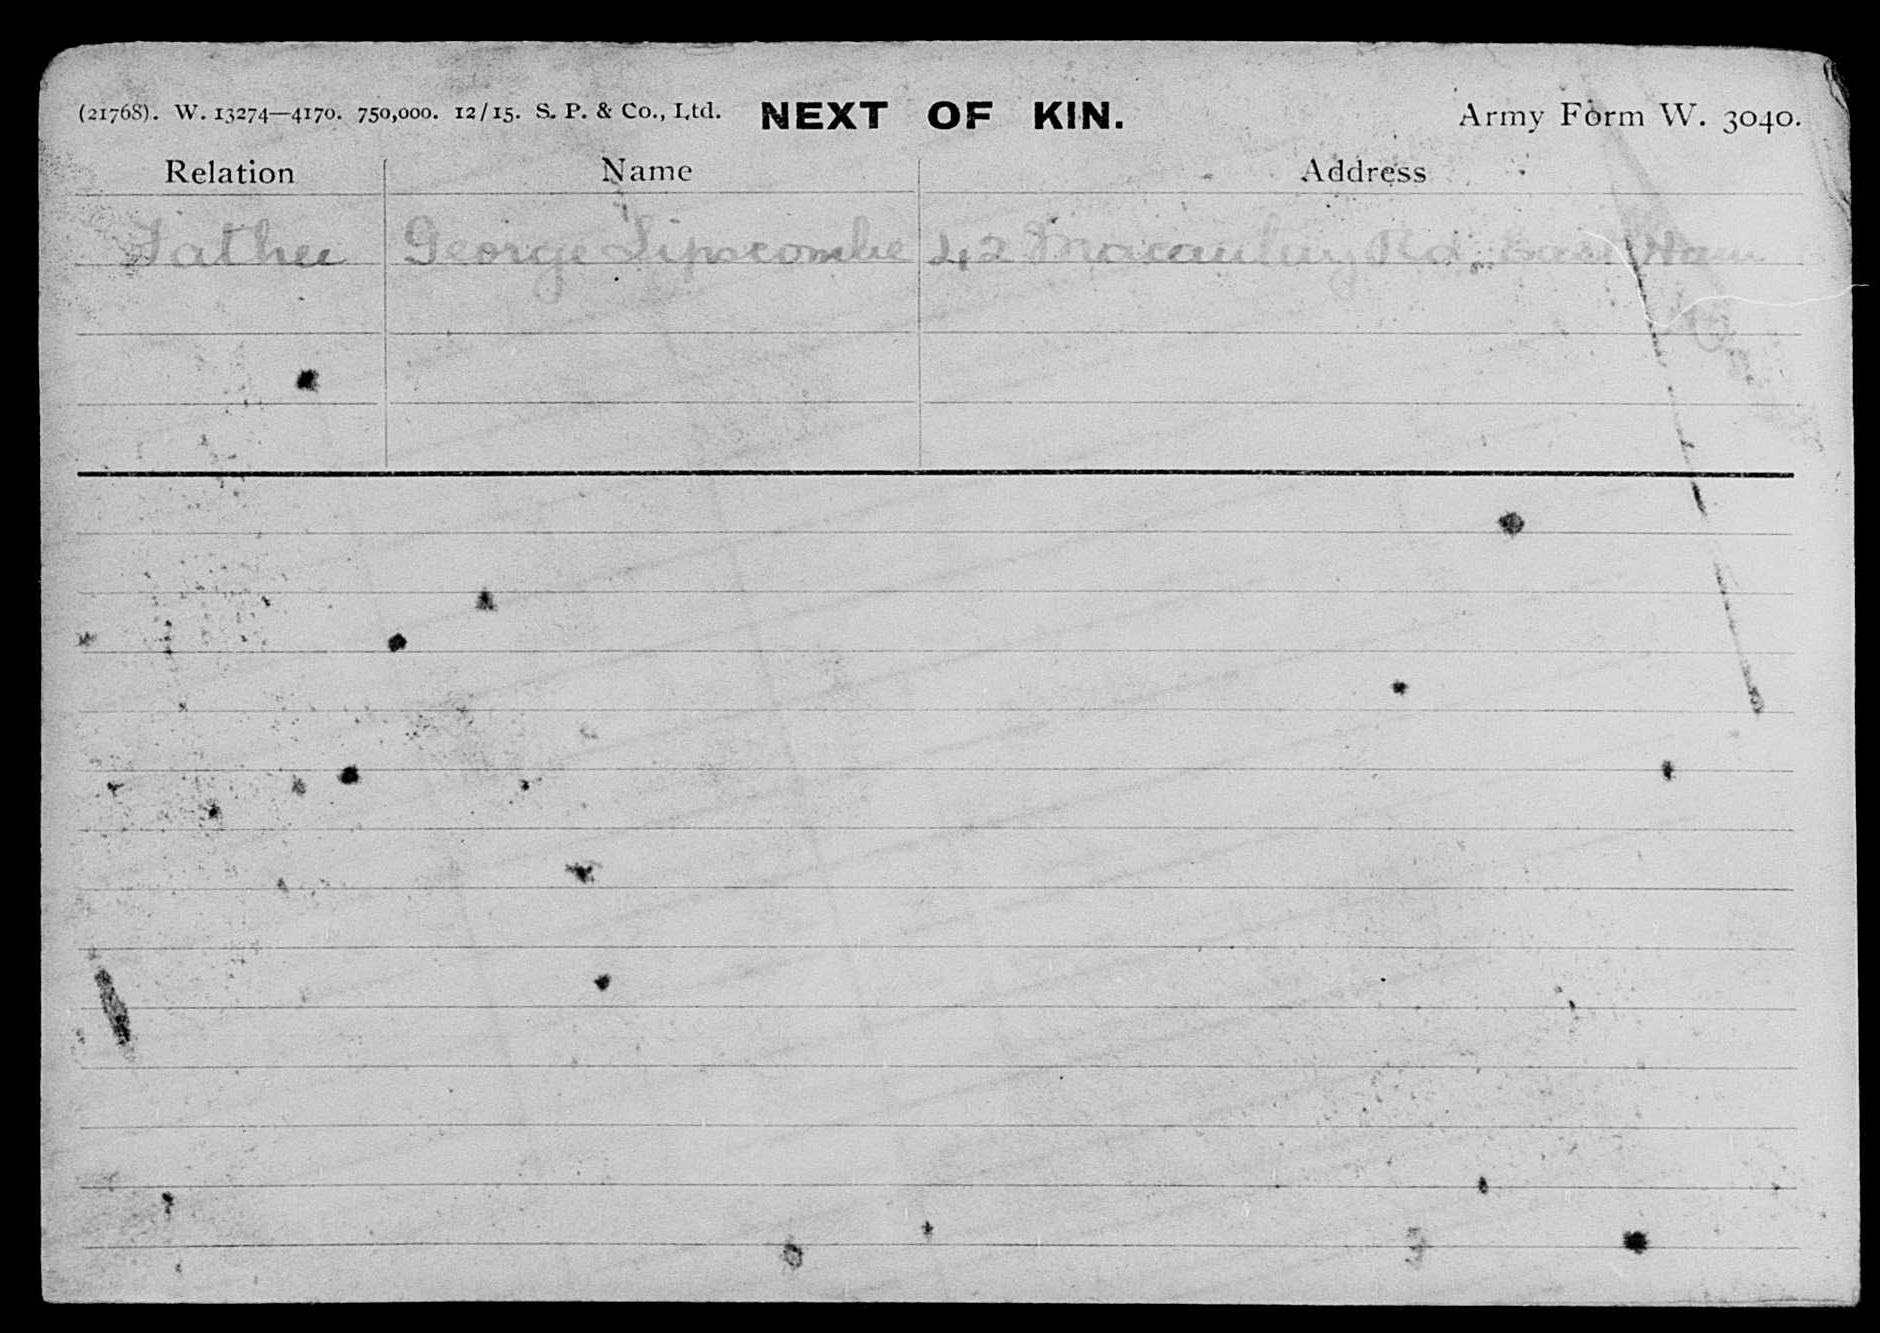 (21768). W. 13274—4170. 750,000. 12/15. S. P. & Co., Ltd. NEXT OF KIN. Army Form W. 3040.
Relation Name Address
Father George Lipscombe 42 Macaulay Rd, East Ham